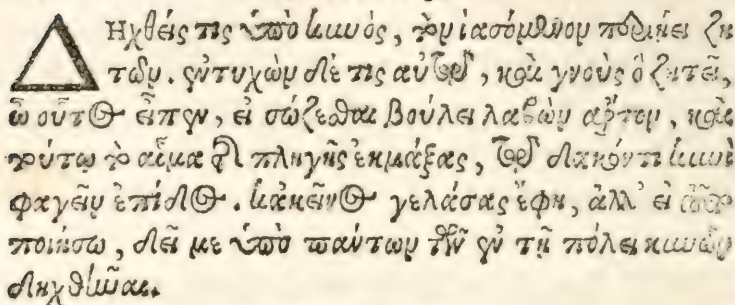 Δηχθείς τις ὑπὸ κυνὸς, τὸν ἰασόμενον περιῄει ζη
τῶν. ἐντυχὼν δέ τις αὐτῷ, καὶ γνοὺς ὃ ζητεῖ,
ὦ οὗτος εἶπεν, εἰ σώζεσθαι βούλει λαβὼν ἄρτον, καὶ
τούτῳ τὸ αἷμα τῆς πληγῆς ἐκμάξας, τῷ δακόντι κυνὶ
φαγεῖν ἐπίδος. κἀκεῖνος γελάσας ἔφη, ἀλλ' εἰ τοῦτο
ποιήσω, δεῖ με ὑπὸ πάντων τῶν ἐν τῇ πόλει κυνῶν
δηχθῆναι.